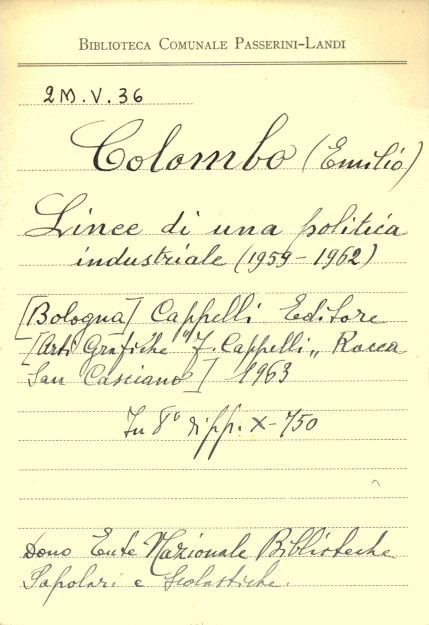 BIBLIOTECA COMUNALE PASSERINI-LANDI
2M.V.36
Colombo (Emilio)
Linee di una politica
industriale (1959-1962)
[Bologna] Cappelli Editore
[Arti Grafiche "F. Cappelli„ Rocca
San Casciano] 1963
In 8° di pp. X-750
Dono Ente Nazionale Biblioteche
Popolari e Scolastiche.